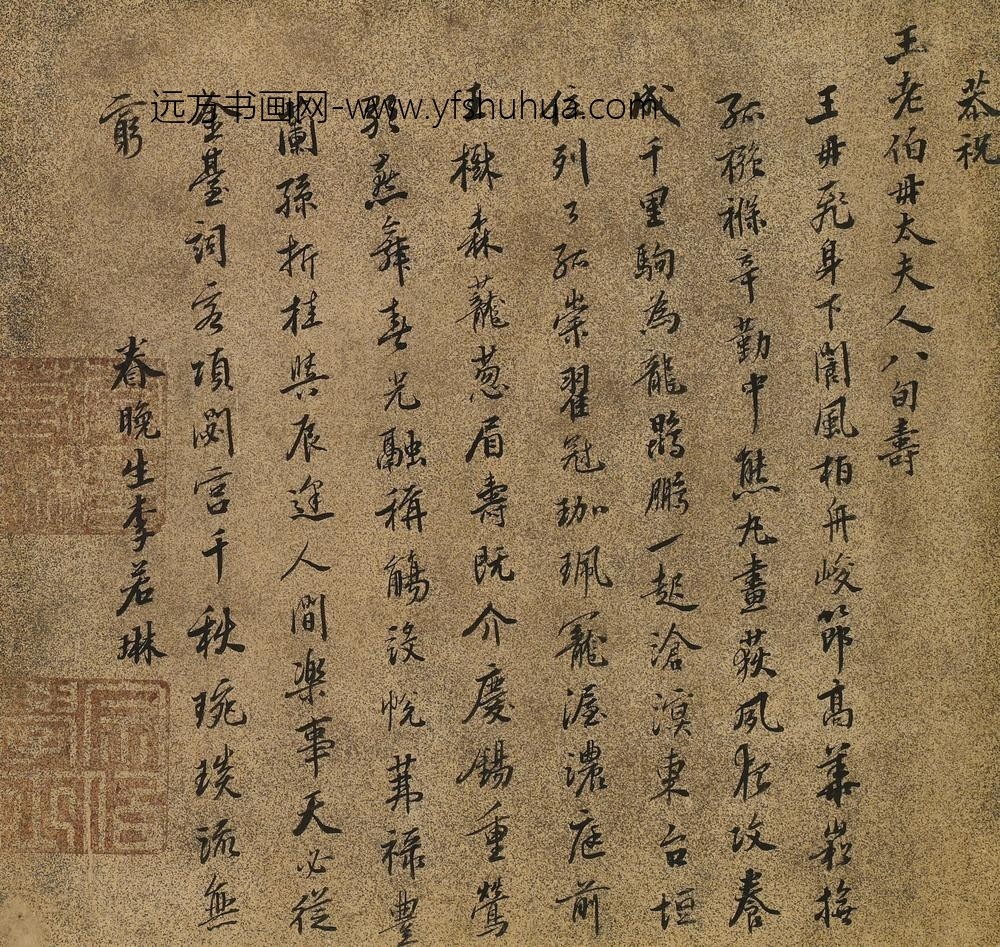 恭祝
王老伯毋太夫人八旬壽
王毋飛身下閬風柏舟峻節高華嵩撫
孤襁褓辛勤中熊丸畫荻夙夜攻養
成千里駒為龍鵾鵬一起滄溟東台垣
位列孤崇翟冠珈珮寵渥濃庭前
玉樹森蘢蔥眉壽既介慶錫重鶯
歌燕舞春光融稱觴設帨茀祿豐
蘭孫折桂與辰逢人間樂事天必從
金臺詞客頌閟宮千秋琬琰流無
窮
眷晚生李若琳
远方书画网-www.yfshuhua.com